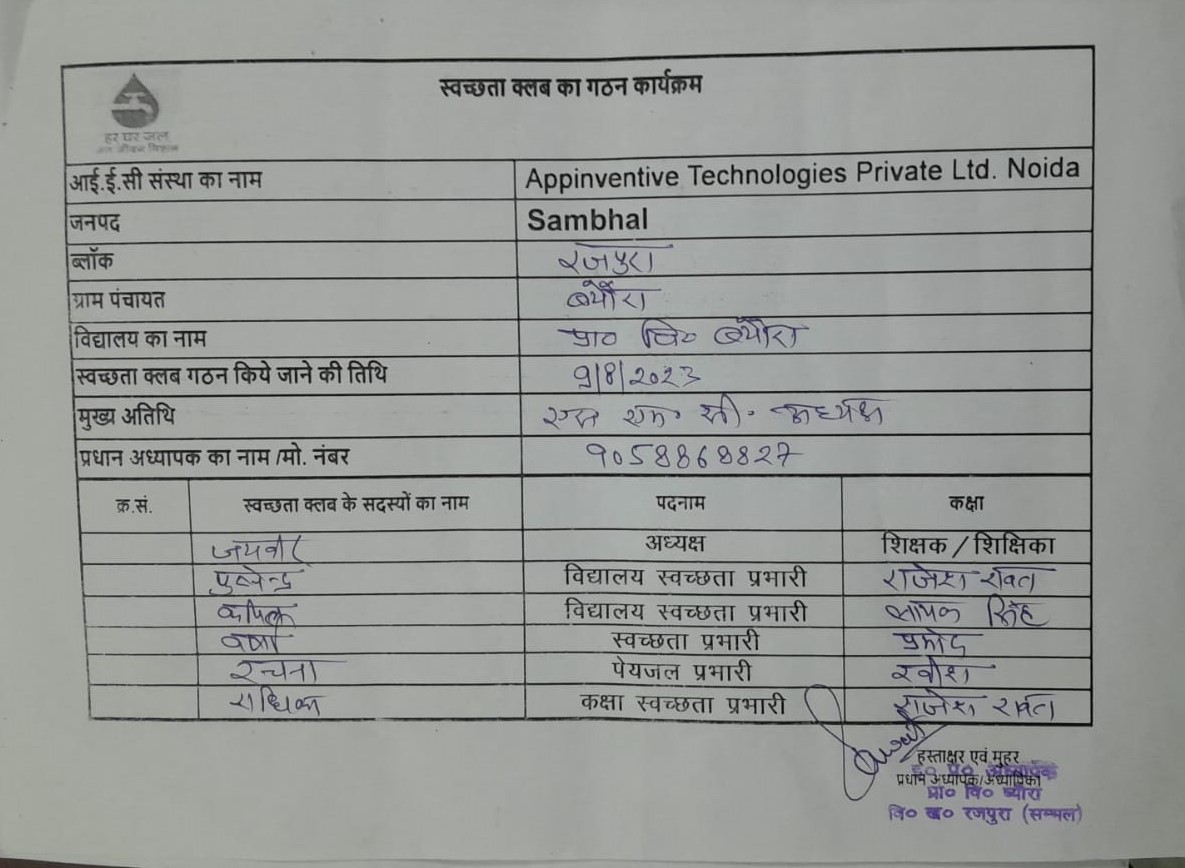 स्वच्छता क्लब का गठन कार्यक्रम
हर घर जल
आई.ई.सी संस्था का नाम Appinventive Technologies Private Ltd. Noida
जनपद Sambhal
ब्लॉक रजपुरा
ग्राम पंचायत ब्यौरा
विद्यालय का नाम प्रा० वि० ब्यौरा
स्वच्छता क्लब गठन किये जाने की तिथि 9/8/2023
मुख्य अतिथि एस एम सी. अध्यक्ष
प्रधान अध्यापक का नाम /मो. नंबर 9058868827
क्र.सं. स्वच्छता क्लब के सदस्यों का नाम पदनाम कक्षा
जयवीर अध्यक्ष शिक्षक / शिक्षिका
विद्यालय स्वच्छता प्रभारी राजेश रावत
कपिल विद्यालय स्वच्छता प्रभारी सिंह
वर्षा स्वच्छता प्रभारी प्रमोद
रचना पेयजल प्रभारी
राधिका कक्षा स्वच्छता प्रभारी राजेश रावत
हस्ताक्षर एवं मुहर
प्रधान अध्यापक/अध्यापिका
इ० प्र० अध्यापक
प्रा० वि० ब्यौरा
वि० ख० रजपुरा (सम्भल)